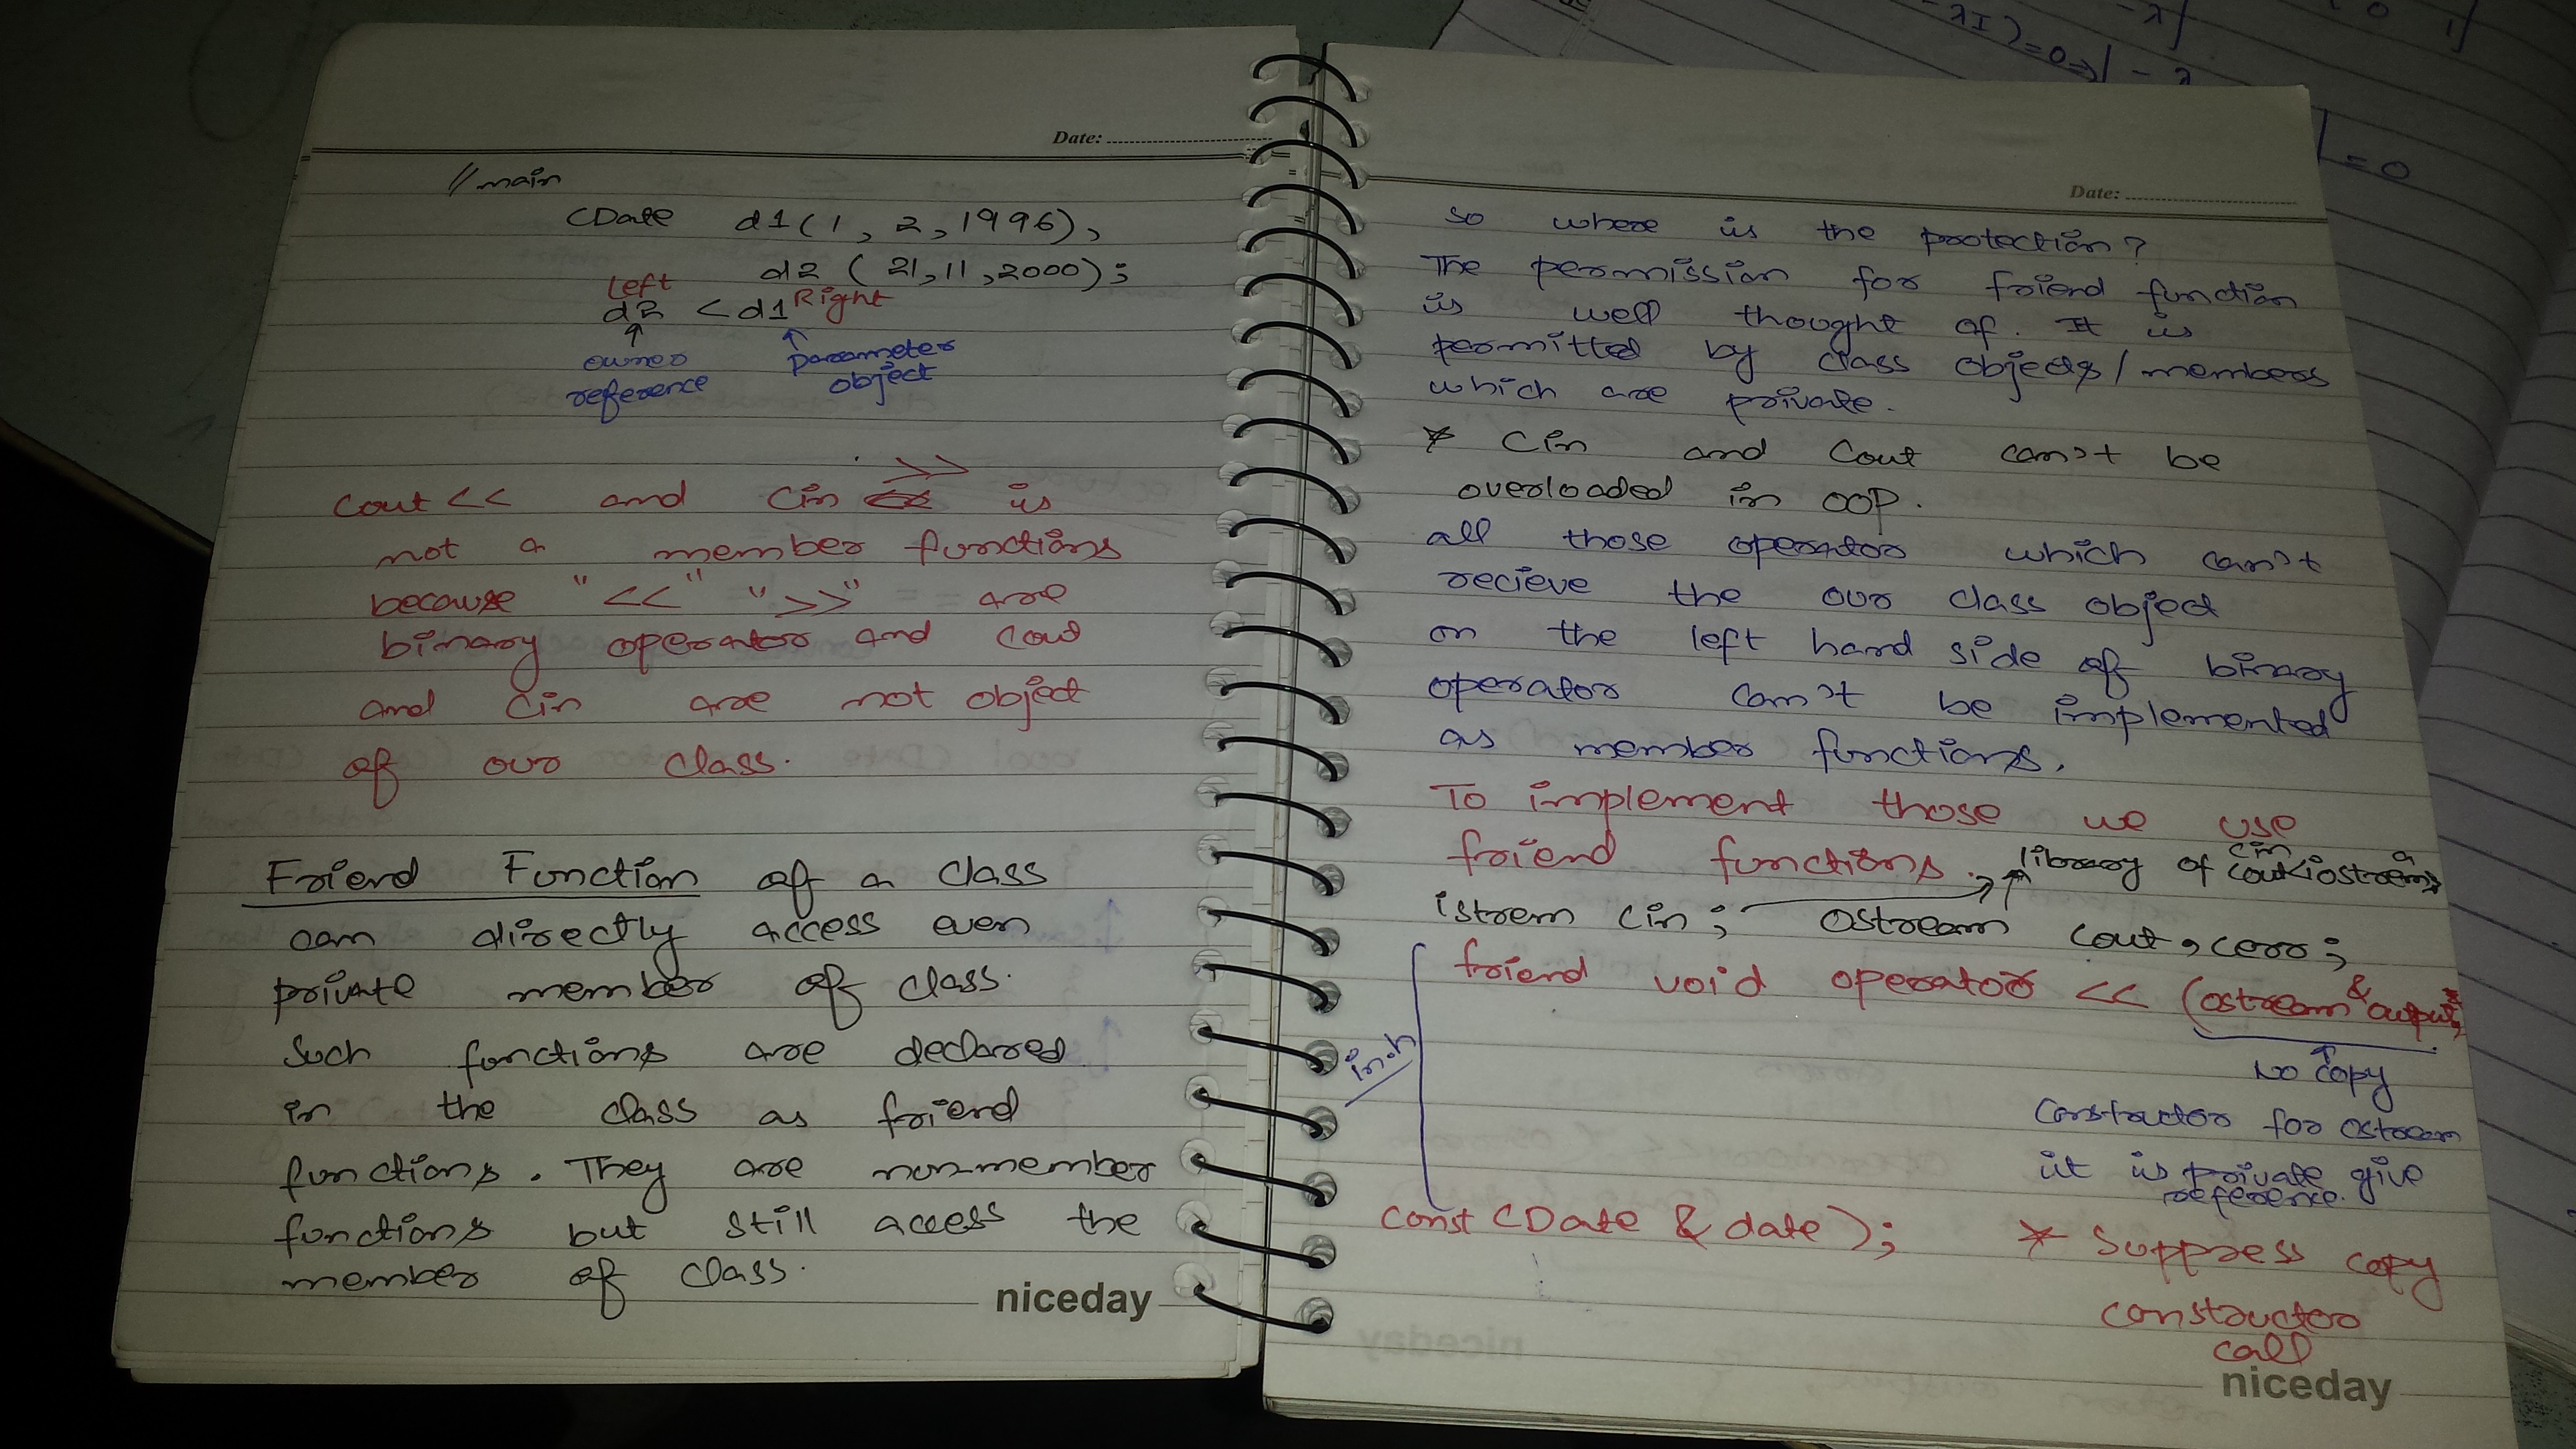 Date:
// main
CDate d1(1, 2, 1996),
d2 (21, 11, 2000);
Left
d2 < d1 Right
owner reference
parameter object
>>
cout << and cin is
not a member functions
because "<<" ">>" are
binary operator and cout
and cin are not object
of our class.
Friend Function of a class
can directly access even
private member of class.
Such functions are declared
in the class as friend
functions. They are non-member
functions but still access the
member of class.
niceday
Date:
so where is the protection?
The permission for friend function
is well thought of. It is
permitted by class objects/members
which are private.
* Cin and Cout can't be
overloaded in OOP.
all those operator which can't
recieve the our class object
on the left hand side of binary
operator can't be implemented
as member functions.
To implement those we use
friend functions.
library of cin cout <iostream>
istrem cin; Ostream cout, cerr;
friend void operator << (ostream & output,
in .h
No copy
constructor for ostream
it is private give
reference.
const CDate & date);
* Suppress copy
constructor
call
niceday
= 0